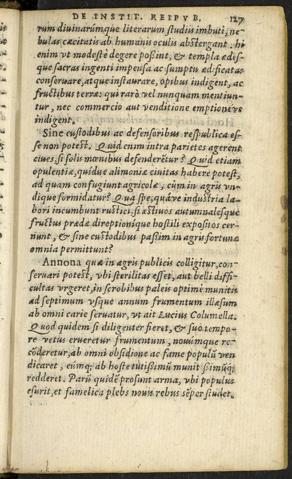 DE INSTIT. REIPVB. 127
rum diuinarúmque literarum studiis imbuti, ne-
bulas cæcitatis ab humanis oculis abstergant. hi
enim vt modestè degere possint, & templa ædes-
que sacras ingenti impensa ac sumptu ædificatas
conseruare, atque instaurare, opibus indigent, ac
fructibus terræ: qui rarò vel nunquam mentiun-
tur, nec commercio aut venditione emptionéve
indigent.
Sine custodibus ac defensoribus respublica es-
se non potest. Quid enim intra parietes agerent
ciues, si solis mœnibus defenderétur? Quid etiam
opulentiæ, quidue alimoniæ ciuitas habere potest,
ad quam confugiunt agricolæ, cùm in agris vn-
dique formidatur? Qua spe, quáve industria la-
bori incumbunt rustici, si æstiuos autumnalésque
fructus prædæ direptioníque hostili expositos cer-
nunt, & sine custodibus passim in agris fortunæ
omnia permittunt?
Annona quæ in agris publicis colligitur, con-
seruari potest, vbi sterilitas esset, aut belli diffi-
cultas vrgeret, in scrobibus paleis optimè munitis
ad septimum vsque annum frumentum illæsum
ab omni carie seruatur, vt ait Lucius Columella.
Quod quidem si diligenter fieret, & suo tempo-
re vetus erueretur frumentum, nouúmque re-
cõderetur, ab omni obsidione ac fame populũ ven
dicaret, eúmq; ab hoste tutissimũ munit[...]simúq;
redderet. Parũ quidẽ prosunt arma, vbi populus
esurit, et famelica plebs nouis rebus sẽper studet.